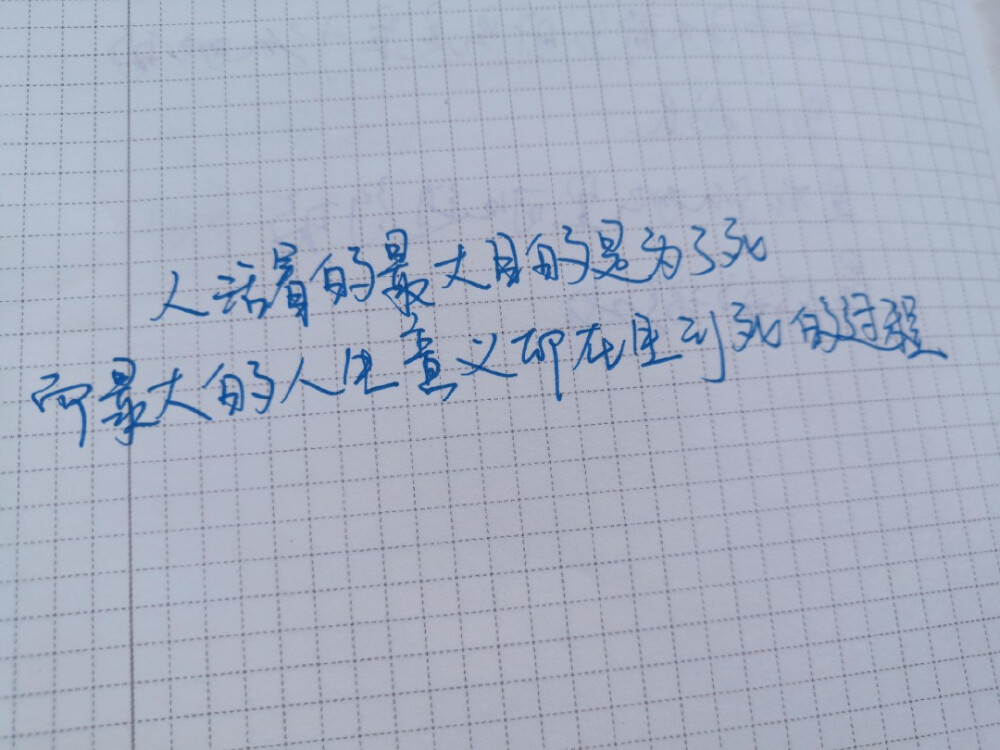 人活着的最大目的是为了死
而最大的人生意义却在生到死的过程